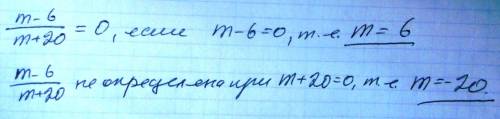 m-6/m+20 = 0, если m-6=0, т.е. m= 6
m-6/m+20 не определена при m+20=0, т.е. m=-20.